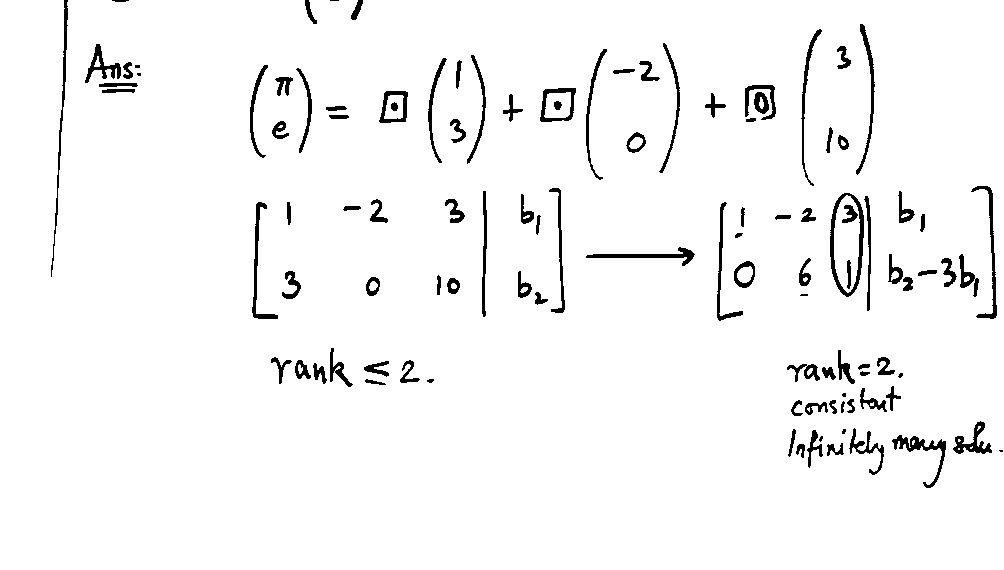 Ans:
(π e) = ⊡ (1 3) + ⊡ (-2 0) + [0] (3 10)
[1 -2 3 | b₁] → [1 -2 3 | b₁]
[3 0 10 | b₂] [0 6 1 | b₂-3b₁]
rank ≤ 2. rank = 2.
consistent
Infinitely many soln.